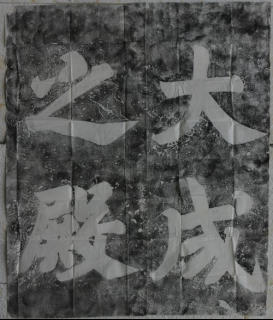 大成
之殿